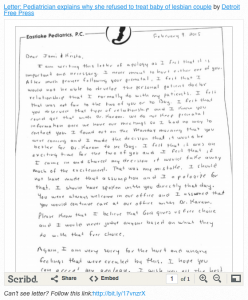 Letter: Pediatrician explains why she refused to treat baby of lesbian couple by Detroit
Free Press
Eastlake Pediatrics, P.C.
February 9 2015
Dear Jami & Krista,
I am writing this letter of apology as I feel that it is
important and necessary. I never meant to hurt either of you.
After much prayer following your prenatal, I felt that I
would not be able to develop the personal patient doctor
relationship that I normally do with my patients. I felt
that was not fair to the two of you or to Bay. I felt that
you deserved that type of relationship and I knew you
could get that with Dr. Karam. We do not keep prenatal
information once we have our meetings so I had no way to
contact you. I found out on the Monday morning that you
were coming and I made the decision that it would be
better for Dr. Karam to see Bay. I felt that it was an
exciting time for the two of you and I felt that if
I came in and shared my decision it would take away
much of the excitement. That was my mistake. I should
not have made that assumption and I apologize for
that. I should have spoken with you directly that day.
You were always welcome in our office and I assumed that
you would continue care at our office with Dr. Karam.
Please know that I believe that God gives us free choice
and I would never judge anyone based on what they
do with that free choice.
Again, I am very sorry for the hurt and
feelings that were created by this. I hope you
can accept my apology. I wish you all the best
Scribd.
Share
Embed
1
of 1
Can't see letter? Follow this link:http://bit.ly/17vnzrX